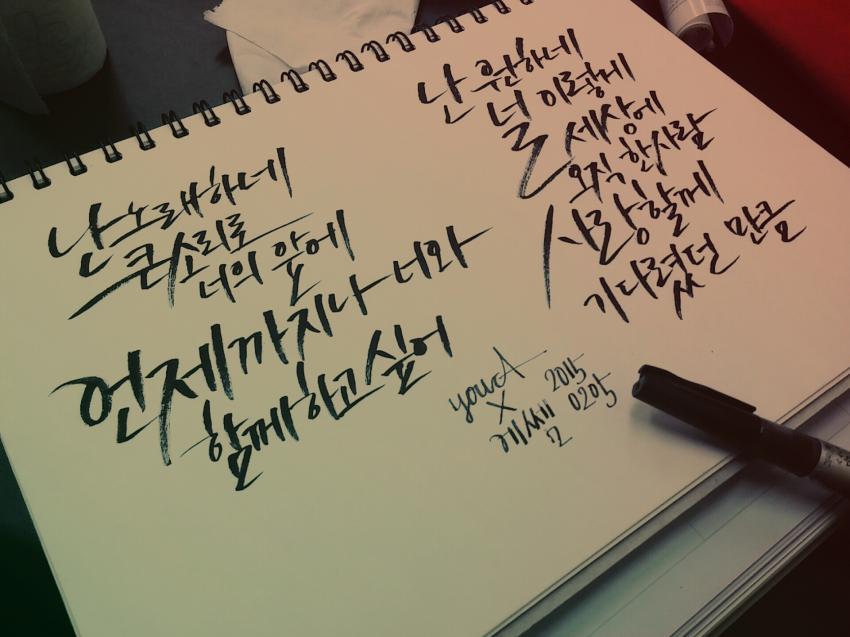 난 노래하네
큰 소리로
너의 앞에
언제까지나 너와
함께하고 싶어
난 원하네
널 이렇게
세상에
오직 한사람
사랑할께
기다렸던 만큼
youA 2015
X 0205
에쎌